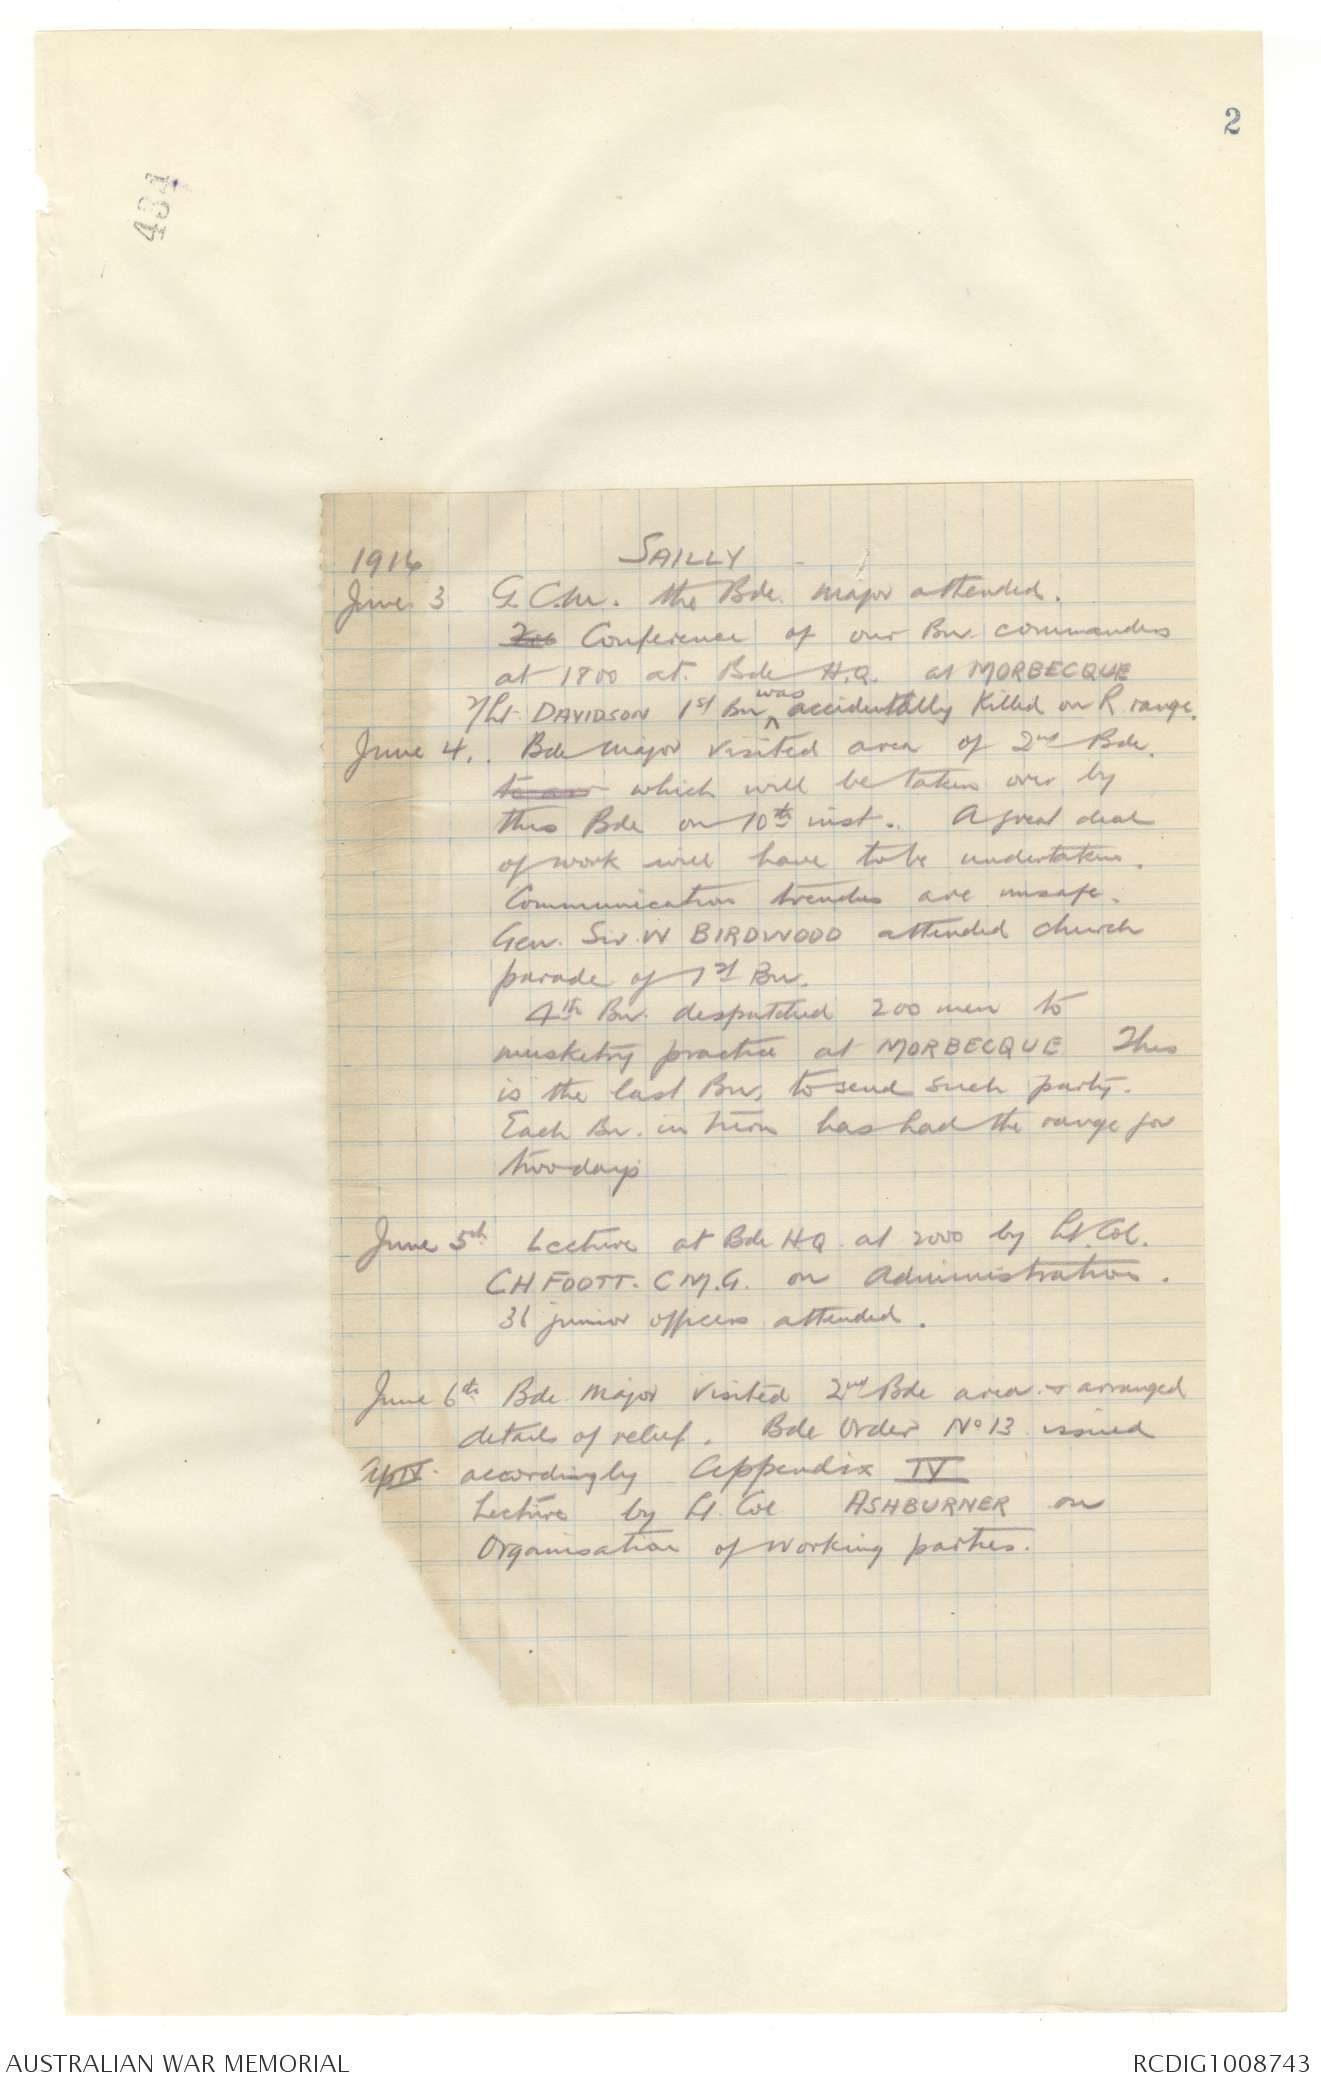 2
434
1916 SAILLY
June 3 G.C.M. the Bde. Major attended.
Conference of our Bn. commanders
at 1800 at. Bde H.Q. at MORBECQUE
2/Lt DAVIDSON 1st Bn was accidentally killed on R range.
June 4. Bde Major visited area of 2nd Bde.
which will be taken over by
this Bde on 10th inst.. A great deal
of work will have to be undertaken.
Communication trenches are unsafe.
Gen. Sir. W BIRDWOOD attended church
parade of 1st Bn.
4th Bn. despatched 200 men to
musketry practice at MORBECQUE This
is the last Bn. to send such party.
Each Bn. in turn has had the range for
two days
June 5th Lecture at Bde HQ at 2000 by Lt. Col.
CH FOOTT. C.M.G. on Administration.
36 junior officers attended.
June 6th Bde. Major visited 2nd Bde area & arranged
details of relief. Bde Order No 13 issued
Ap IV. accordingly Appendix IV
Lecture by Lt. Col ASHBURNER on
Organisation of working parties.
AUSTRALIAN WAR MEMORIAL
RCDIG1008743